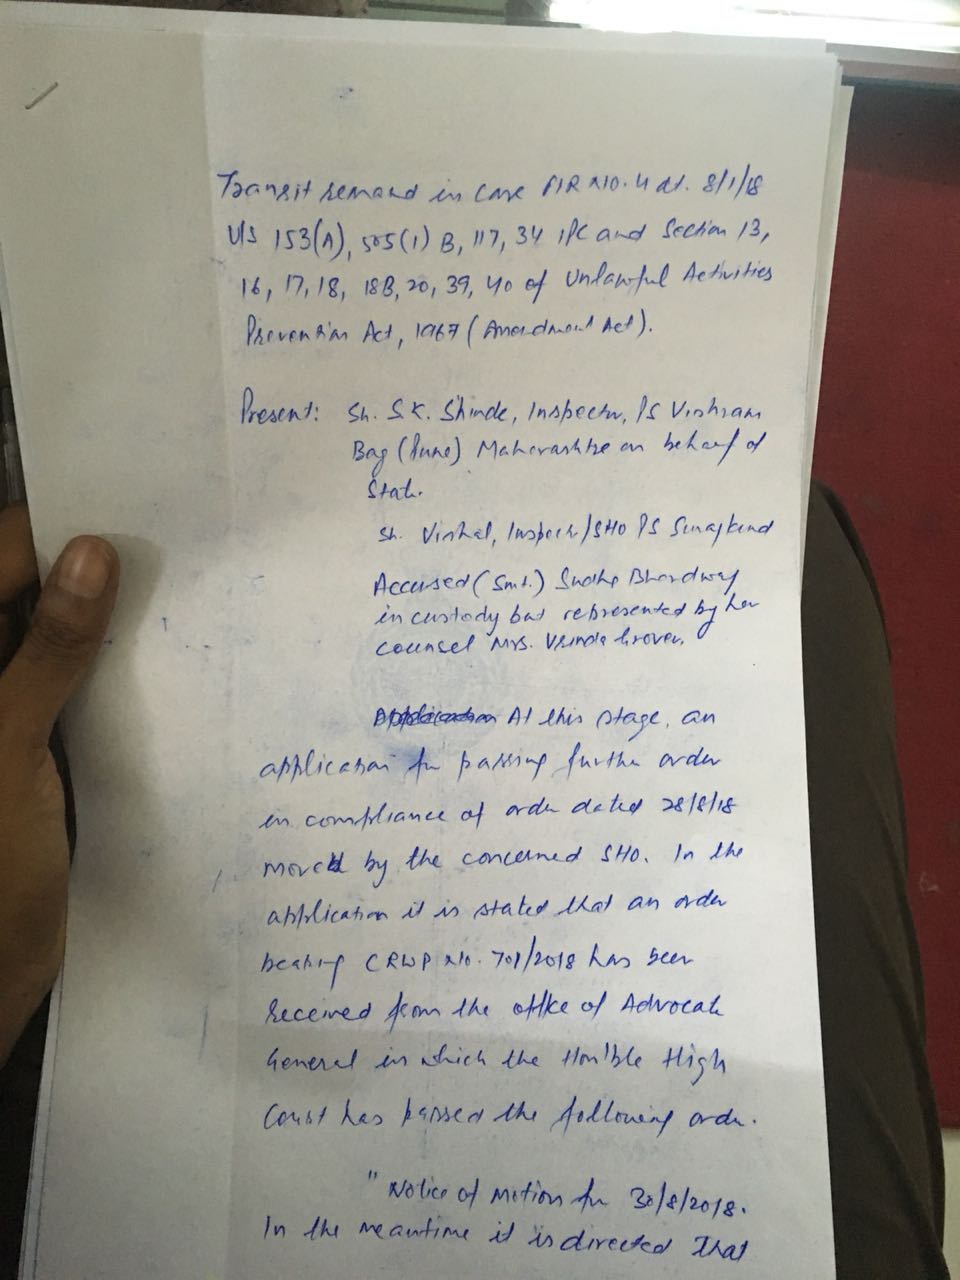 Transit remand in case FIR No. 4 dt. 8/1/18
U/S 153(A), 505(1) B, 117, 34 IPC and Section 13,
16, 17, 18, 18B, 20, 39, 40 of Unlawful Activities
Prevention Act, 1967 (Amendment Act).
Present: Sh. S.K. Shinde, Inspector, PS Vishram
Bag (Pune) Maharashtra on behalf of
State.
Sh. Vishal, Inspector/SHO PS Surajkund
Accused (Smt.) Sudha Bhardwaj
in custody but represented by her
counsel Mrs. Vrinda Grover.
Application At this stage, an
application for passing further order
in compliance of order dated 28/8/18
moved by the concerned SHO. In the
application it is stated that an order
bearing CRWP No. 701/2018 has been
received from the office of Advocate
General in which the Hon'ble High
Court has passed the following order.
"Notice of Motion for 30/8/2018.
In the meantime it is directed that